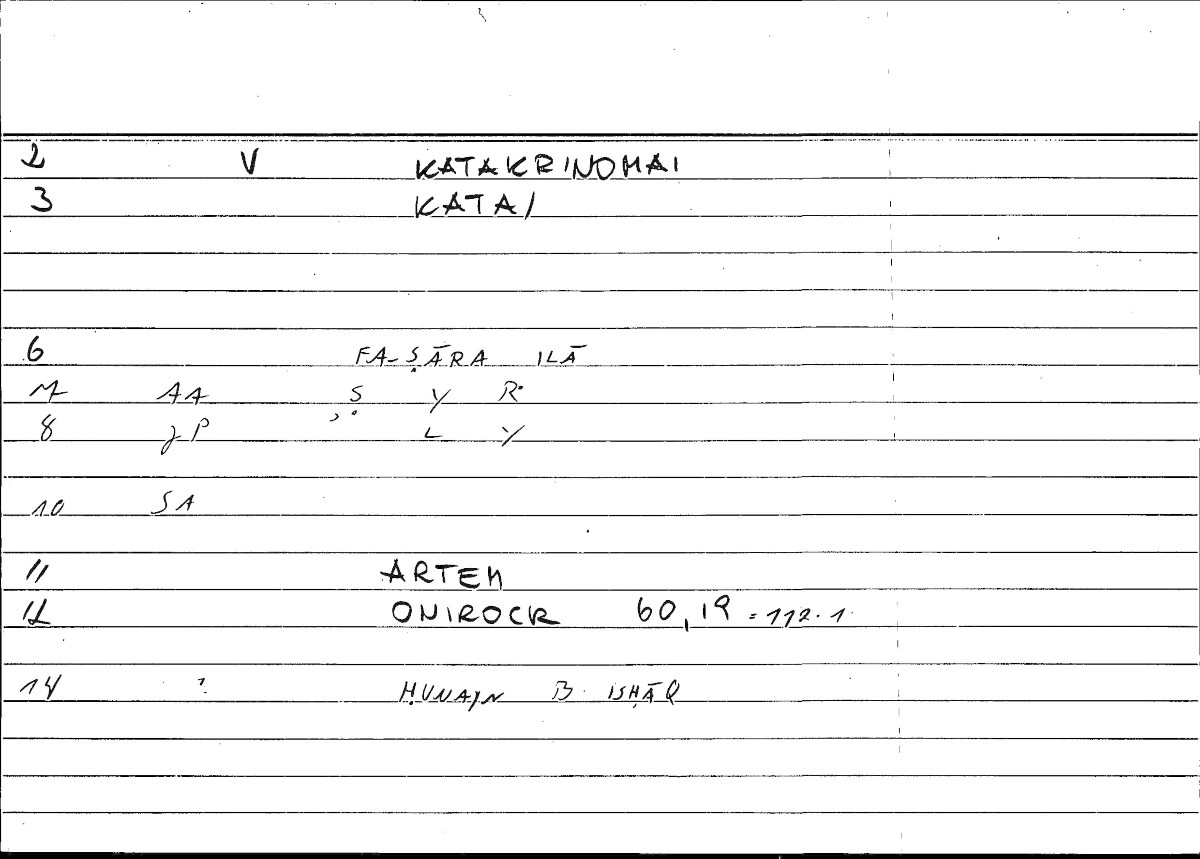 2 V KATAKRINOMAI
3 KATAI
6 FA-ṢĀRA ILĀ
7 AA Ṣ Y R
8 gP ʾ L Y
10 SA
11 ARTEM
12 ONIROCR 60,19 = 112.1
14 ? ḤUNAJN B. ISḤĀQ